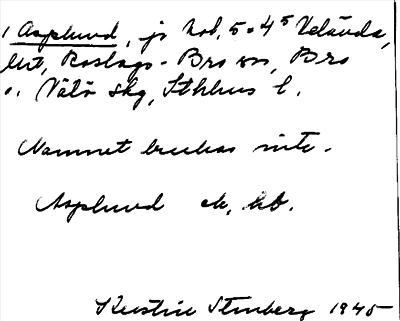 1 Asplund, jr hol, 5o4⁵ Velända,
lht, Roslags-Bro sn, Bro
o. Vätö skg, Sthlms l.
Namnet brukas inte.
Asplund ek, kb.
Kerstin Stenberg 1945